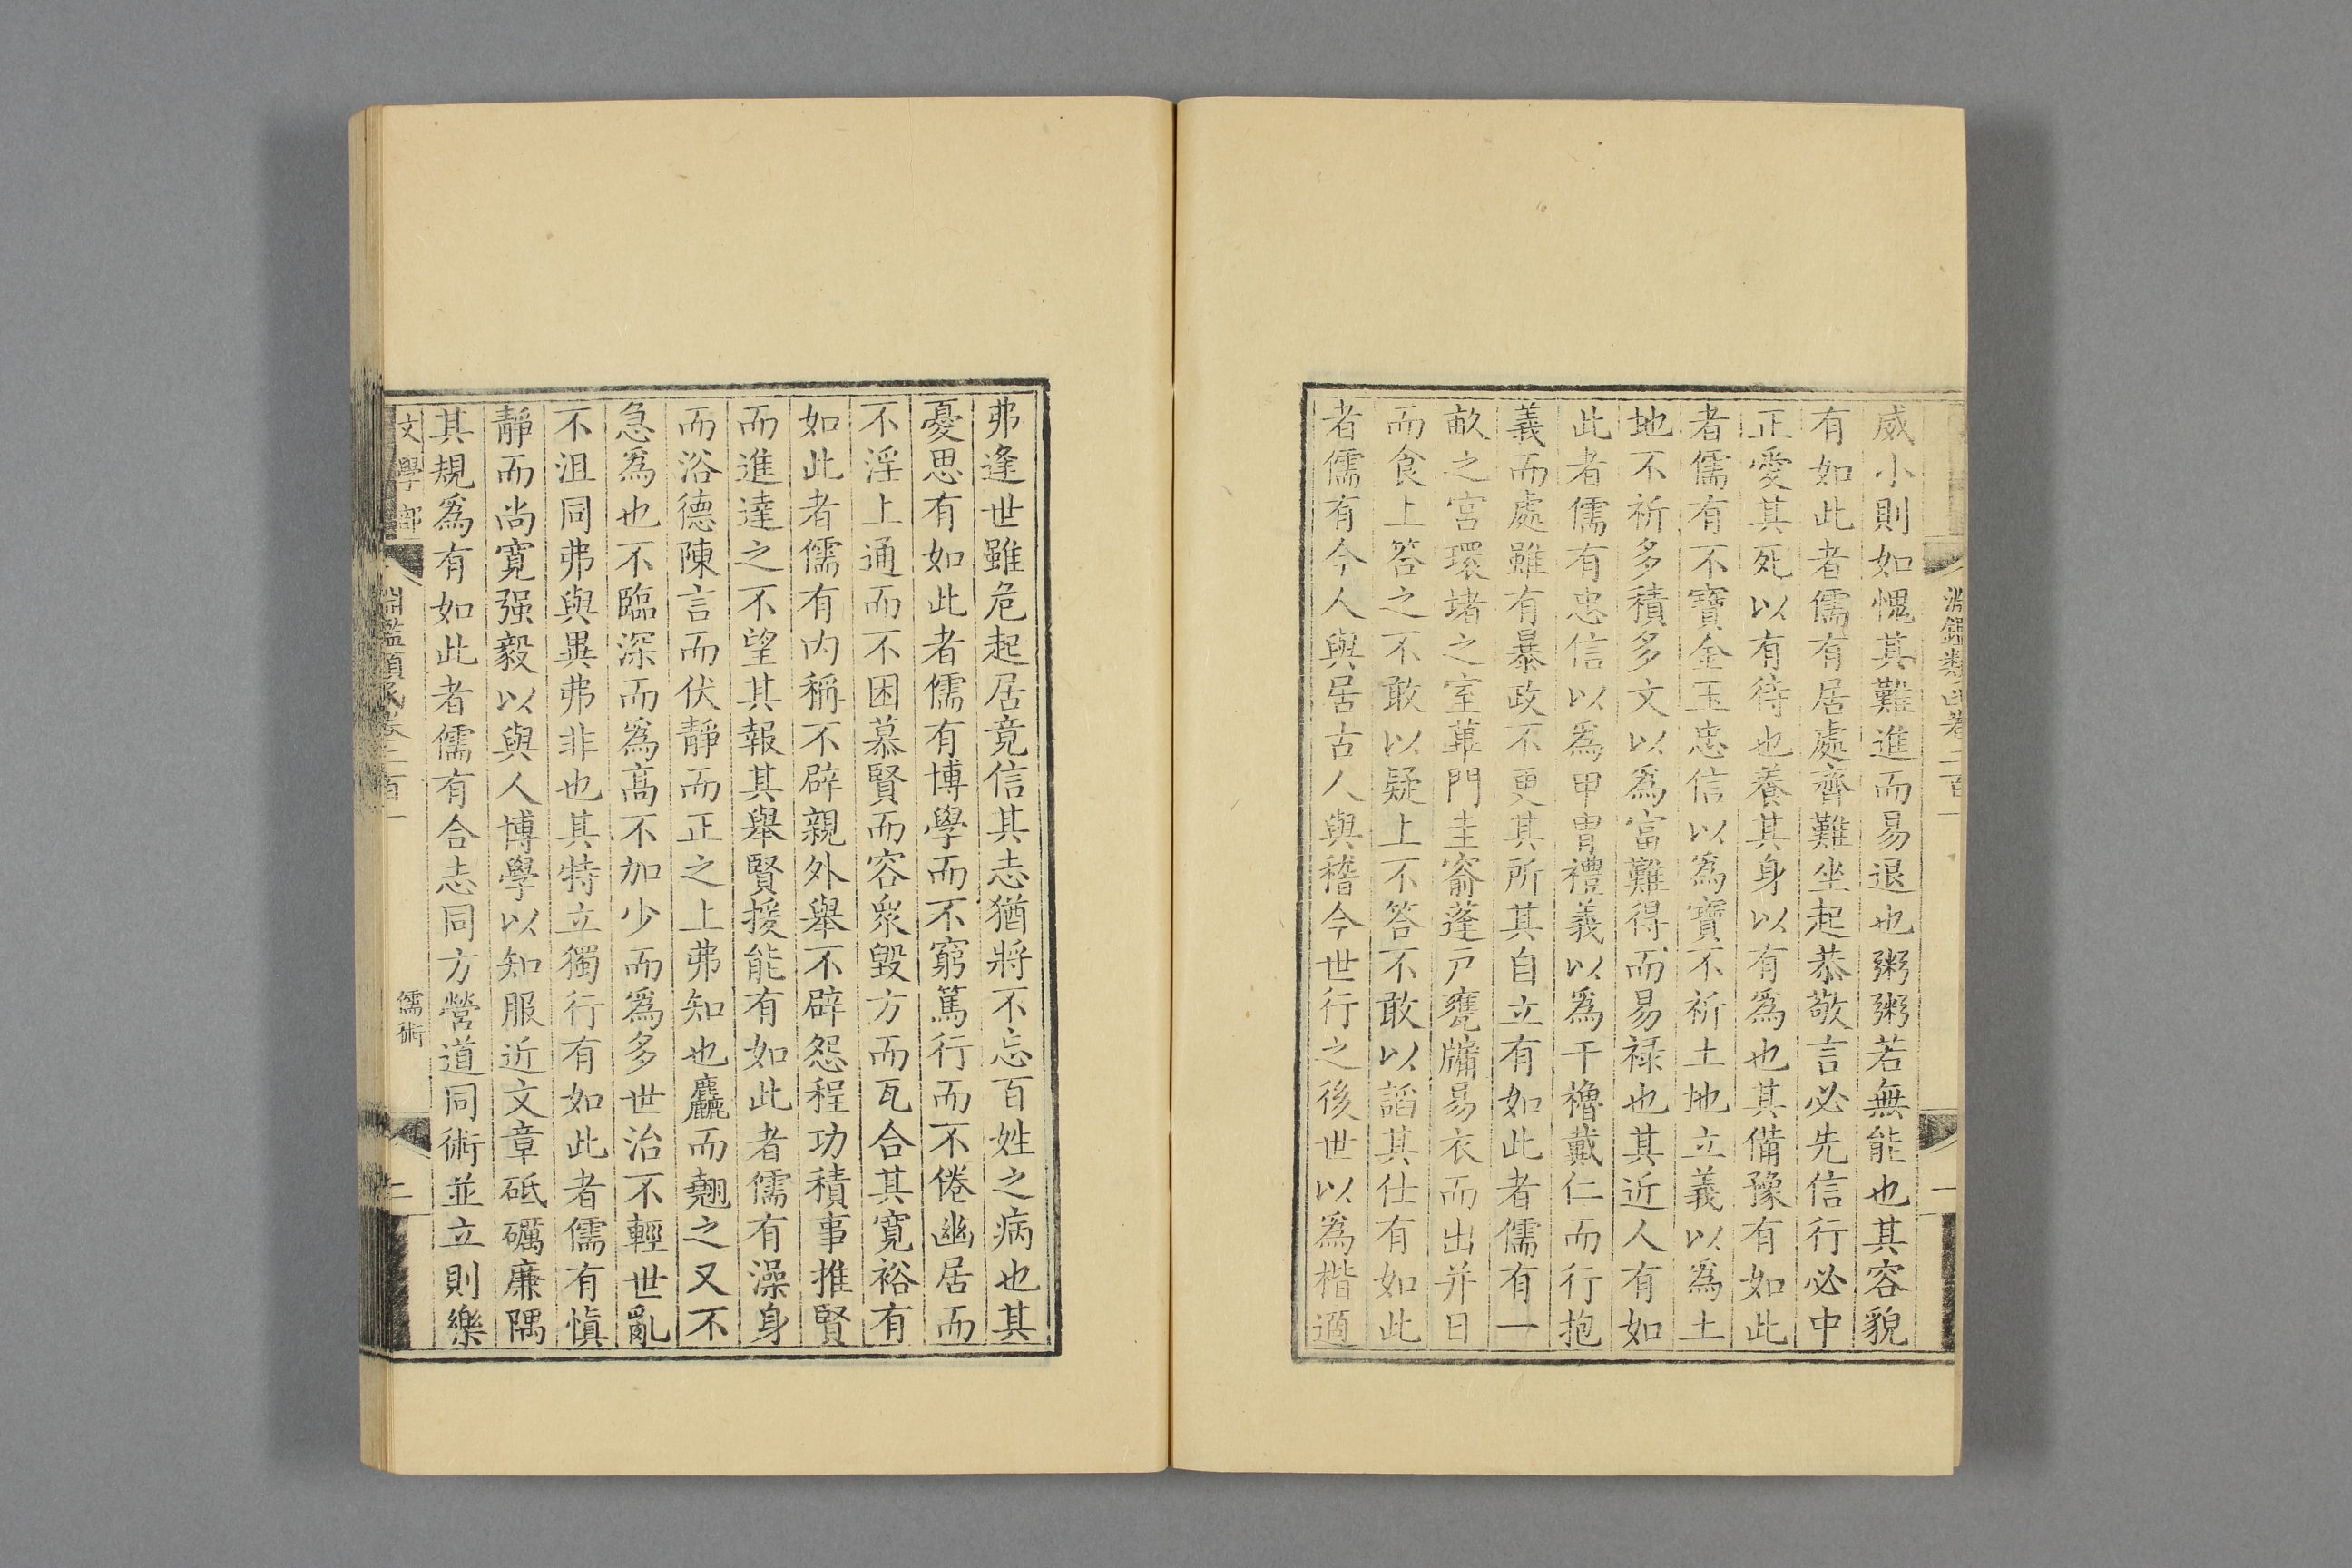 威小則如愧其難進而易退也粥粥若無能也其容貌
有如此者儒有居處齊難坐起恭敬言必先信行必中
正愛其死以有待也養其身以有爲也其備豫有如此
者儒有不寶金玉忠信以爲寶不祈土地立義以爲土
地不祈多積多文以爲富難得而易祿也其近人有如
此者儒有忠信以爲甲胄禮義以爲干櫓戴仁而行抱
義而處雖有暴政不更其所其自立有如此者儒有一
畝之宮環堵之室蓽門圭窬蓬戸甕牖易衣而出并日
而食上答之不敢以疑上不答不敢以諂其仕有如此
者儒有今人與居古人與稽今世行之後世以爲楷適
弗逢世雖危起居竟信其志猶將不忘百姓之病也其
憂思有如此者儒有博學而不窮篤行而不倦幽居而
不淫上通而不困慕賢而容衆毀方而瓦合其寛裕有
如此者儒有内稱不辟親外舉不辟怨程功積事推賢
而進達之不望其報其舉賢援能有如此者儒有澡身
而浴德陳言而伏靜而正之上弗知也麤而翹之又不
急爲也不臨深而爲髙不加少而爲多世治不輕世亂
不沮同弗與異弗非也其特立獨行有如此者儒有愼
靜而尚寛强毅以與人博學以知服近文章砥礪廉隅
其規爲有如此者儒有合志同方營道同術並立則樂
文學部
淵鑑類函卷二百一
儒術
二